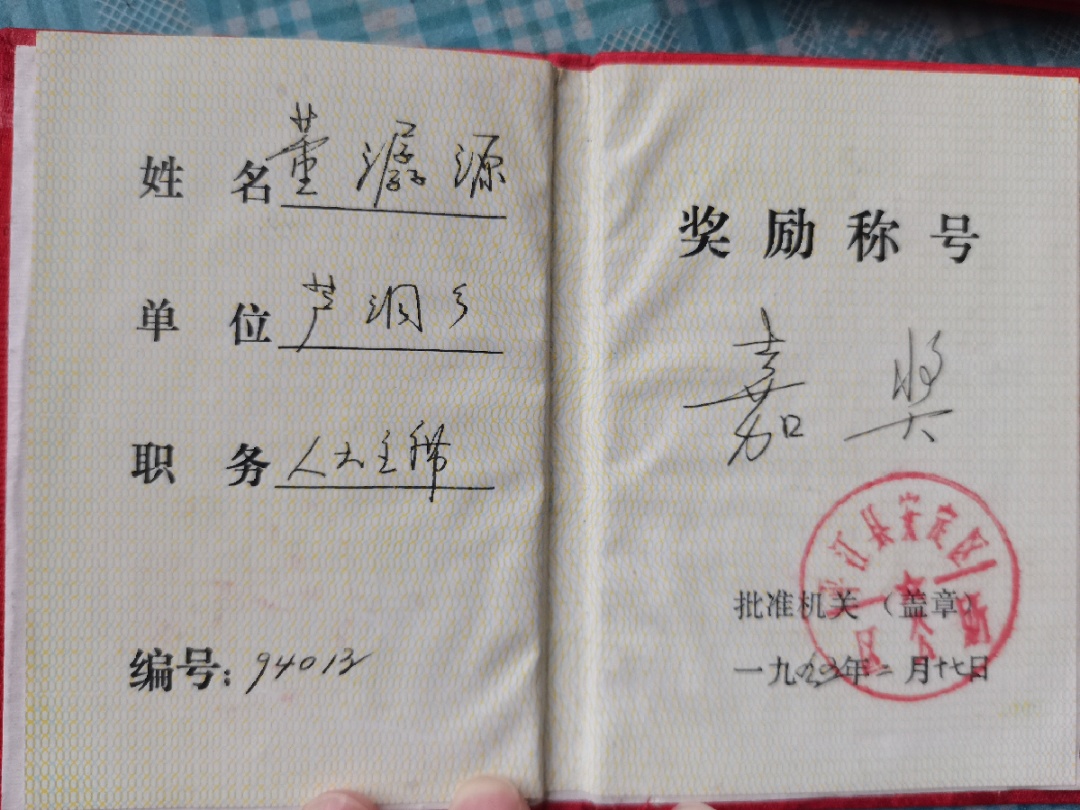 姓 名 董潺源
单 位 芦洞乡
职 务 人大主席
编号：94013
奖励称号
嘉奖
江县安定区
区公所
批准机关（盖章）
一九 年二月十七日